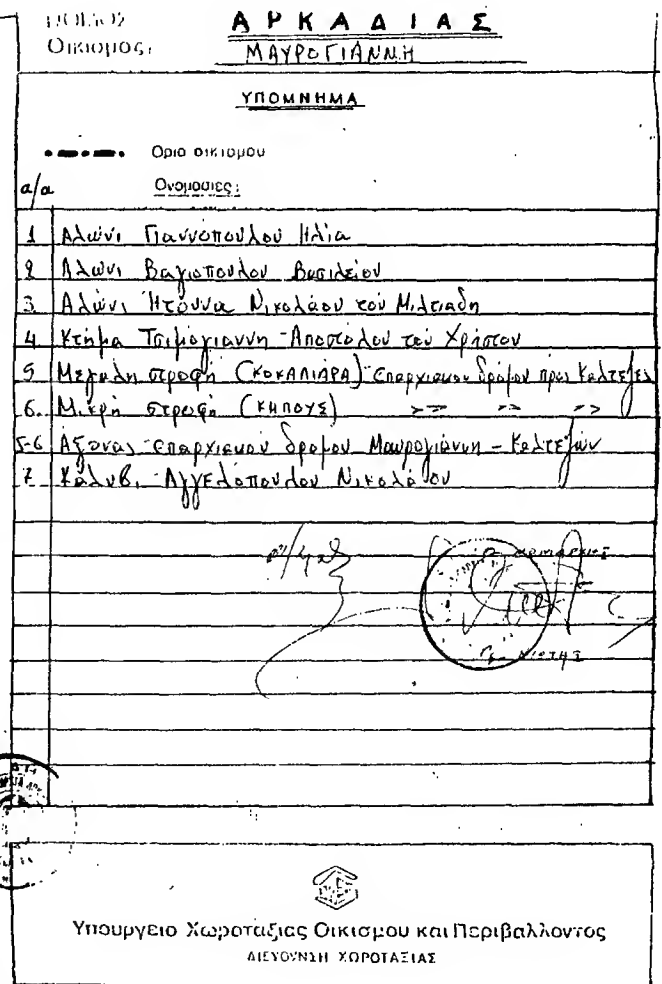 ΑΡΚΑΔΙΑΣ
Οικισμος: ΜΑΥΡΟΓΙΑΝΝΗ
ΥΠΟΜΝΗΜΑ
Οριο οικισμου
α/α Ονομασιες:
1 Αλώνι Γιαννόπουλου Ηλία
2 Αλώνι Βαγιοπουλου Βασιλείου
3 Αλώνι Ντούννα Νικολάου του Μιλτιάδη
4 Κτήμα Τσιμογιαννη Αποστόλου του Χρήστου
5 Μεγάλη στροφή (ΚΟΚΑΛΙΑΡΑ) επαρχιακου δρόμου προς Καλτεζες
6. Μικρή στροφή (ΚΗΠΟΥΣ) >> >> >>
5-6 Αξονας επαρχιακού δρόμου Μαυρογιάννη - Καλτεζών
7 Καλύβι Αγγελόπουλου Νικολάου
Υπουργειο Χωροταξιας Οικισμου και Περιβαλλοντος
ΔΙΕΥΘΥΝΣΗ ΧΩΡΟΤΑΞΙΑΣ